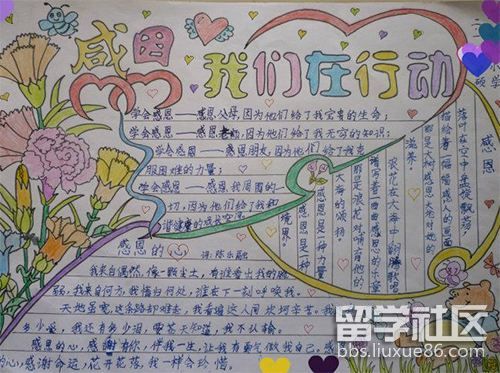 感恩
我们在行动
学会感恩——感恩父母,因为他们给了我宝贵的生命;
学会感恩——感恩老师,因为他们给了我无穷的知识;
学会感恩——感恩朋友,因为他们给了我克
服困难的力量;
学会感恩——感恩我周围的一
切,因为他们给了我和
谐健康的成长空间
感恩
落叶在空中盘旋飘荡,
描绘着一幅幅感恩的画面
那是大
滋养。
浪花在大海中翻腾歌唱
谱写着一曲曲感恩的乐章
那是浪花对哺育他的
大海的颂扬
感恩是一种力量
感恩是一种
境界。
感恩的心
词:陈乐融
我来自偶然,像一颗尘土,有谁看出我的脆
弱,我来自何方,我情归何处,谁在下一刻呼唤我。
天地虽宽,这条路却难走,我看遍这人间坎坷辛苦,我
多少爱,我还有多少泪,要苍天知道,我不认输
感恩的心,感谢有你,伴我一生,让我有勇气做我自己,感
的心,感谢命运,花开花落,我一样会珍惜。
留学社区
bbs.liuxue86.com